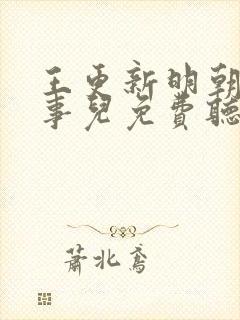 王更新明朝
事兒免費聽
蕭北鳶